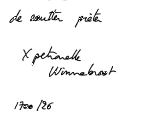 de soutter pieter
X petronelle
Winnebroot
1700/26